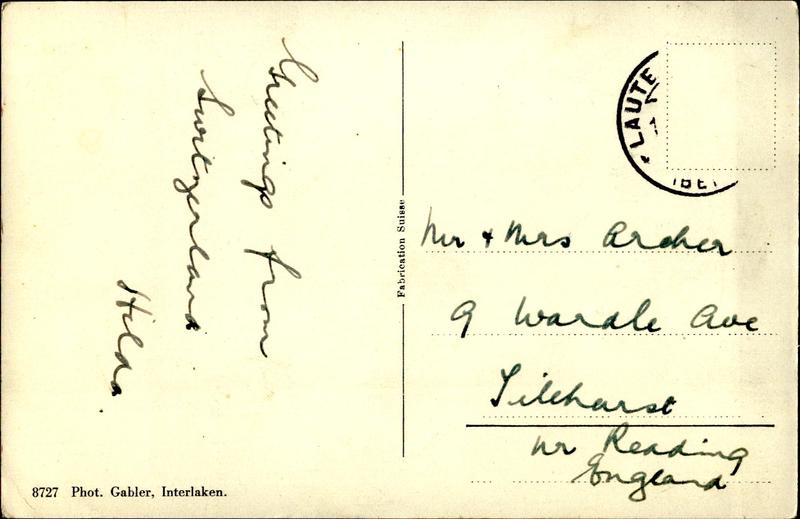 Greetings from
Switzerland
Hilda
8727 Phot. Gabler, Interlaken.
Fabrication Suisse
LAUTE
Mr + Mrs Archer
9 Wardle Ave
Tilehurst
nr Reading
England